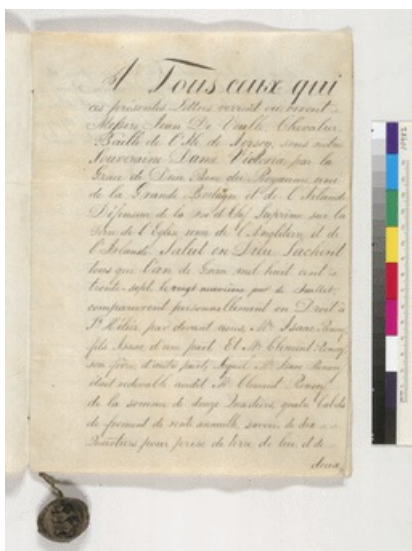 A Tous ceux qui
ces présentes Lettres verront ou oiront
Messire Jean De Veulle, Chevalier,
Baillé de l'Ile de Jersey, sous notre
Souveraine Dame Victoria, par la
Grace de Dieu Reine du Royaume uni
de la Grande Bretagne et de l'Irlande
Défenseur de la Foi et Chef Suprême sur la
Terre de l'Eglise unie de l'Angleterre et de
l'Irlande, Salut en Dieu. Sachent
tous que l'an de Grace mil huit cent
trente-sept, le vingt neuvième jour de Juillet,
comparurent personnellement en Droit à
St. Hélier, par devant nous, Mr. Isaac
fils Isaac d'une part, Et Mr. Clement
son frère, d'autre part, lequel Mr. Isaac
étant redevable audit Mr. Clement
de la somme de douze quartiers, quatre Cabots
de froment de rente annuelle, savoir, de dix
Quartiers pour prise de terre de lui, et de
deux